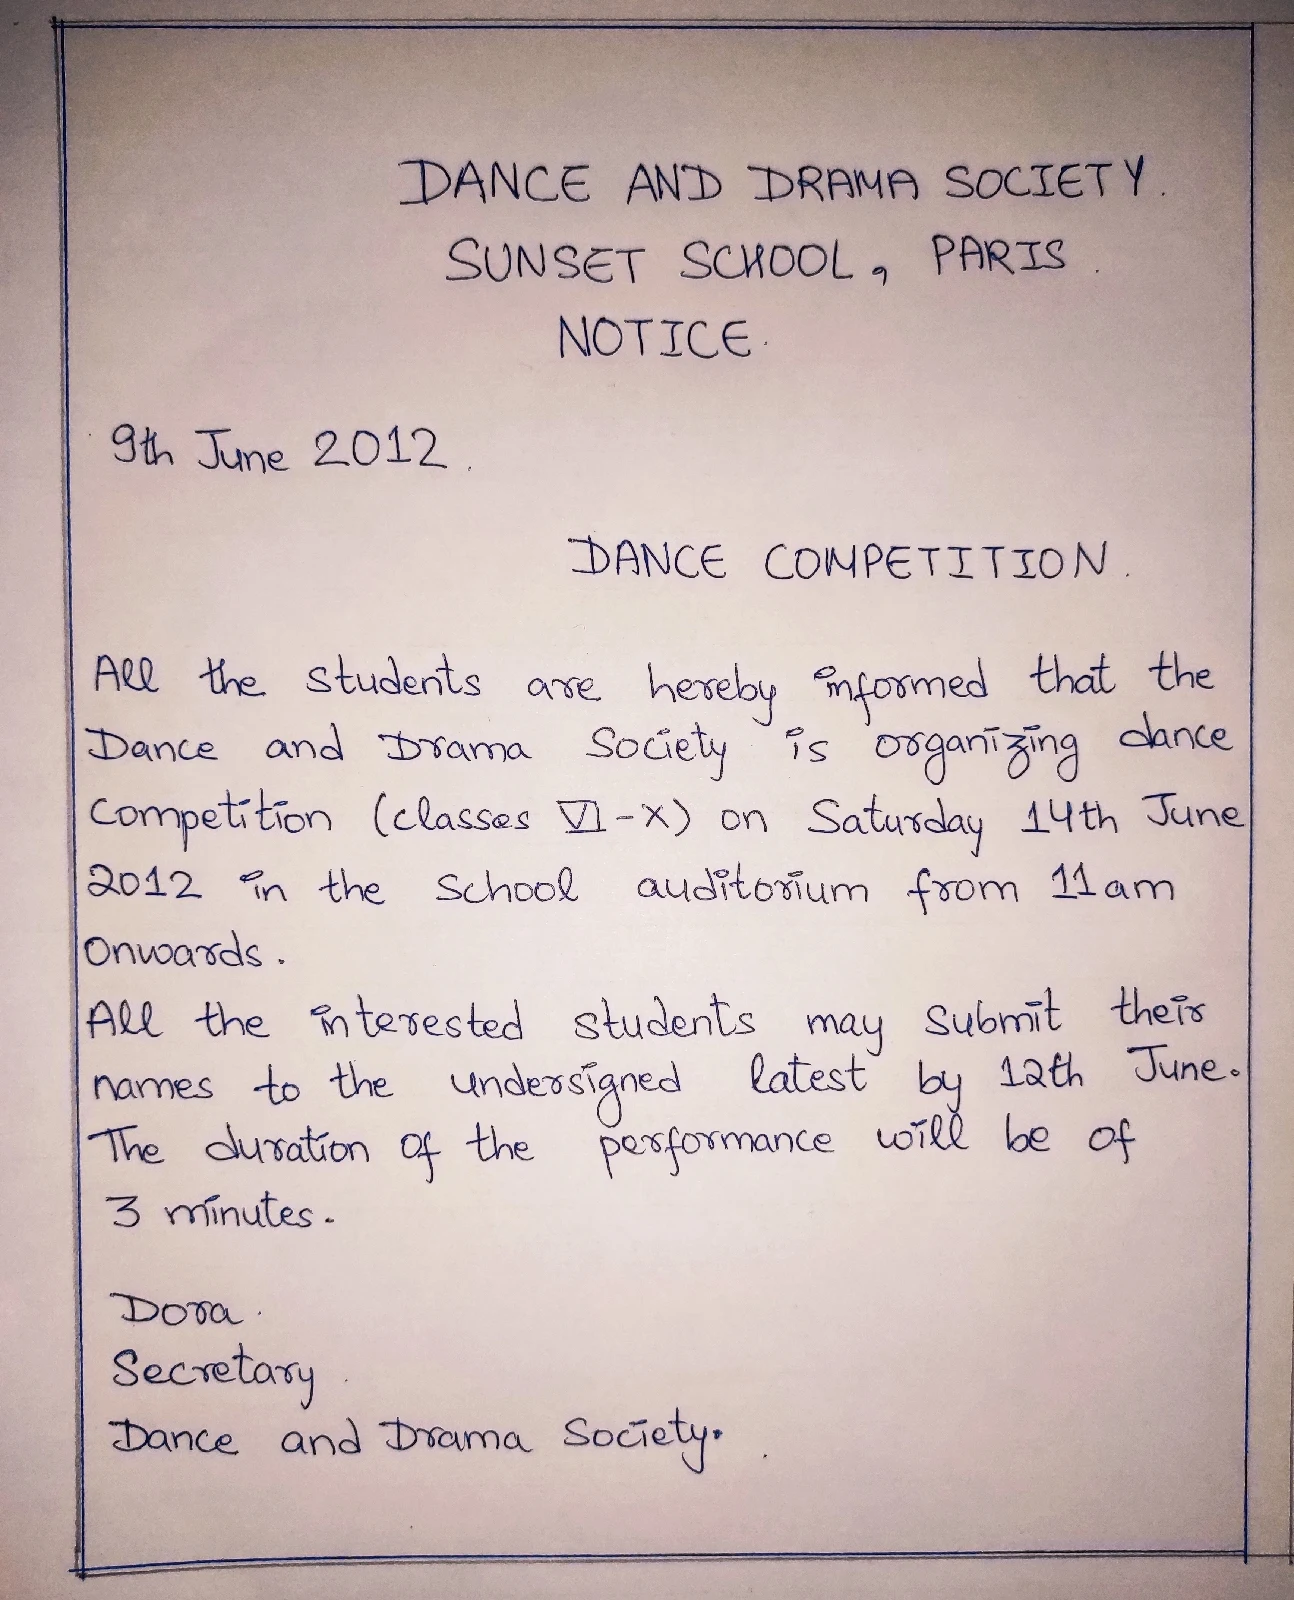 DANCE AND DRAMA SOCIETY.
SUNSET SCHOOL, PARIS.
NOTICE.
9th June 2012.
DANCE COMPETITION.
All the students are hereby informed that the
Dance and Drama Society is organizing dance
Competition (classes VI-X) on Saturday 14th June
2012 in the School auditorium from 11am
Onwards.
All the interested students may submit their
names to the undersigned latest by 12th June.
The duration of the performance will be of
3 minutes.
Dora.
Secretary.
Dance and Drama Society.